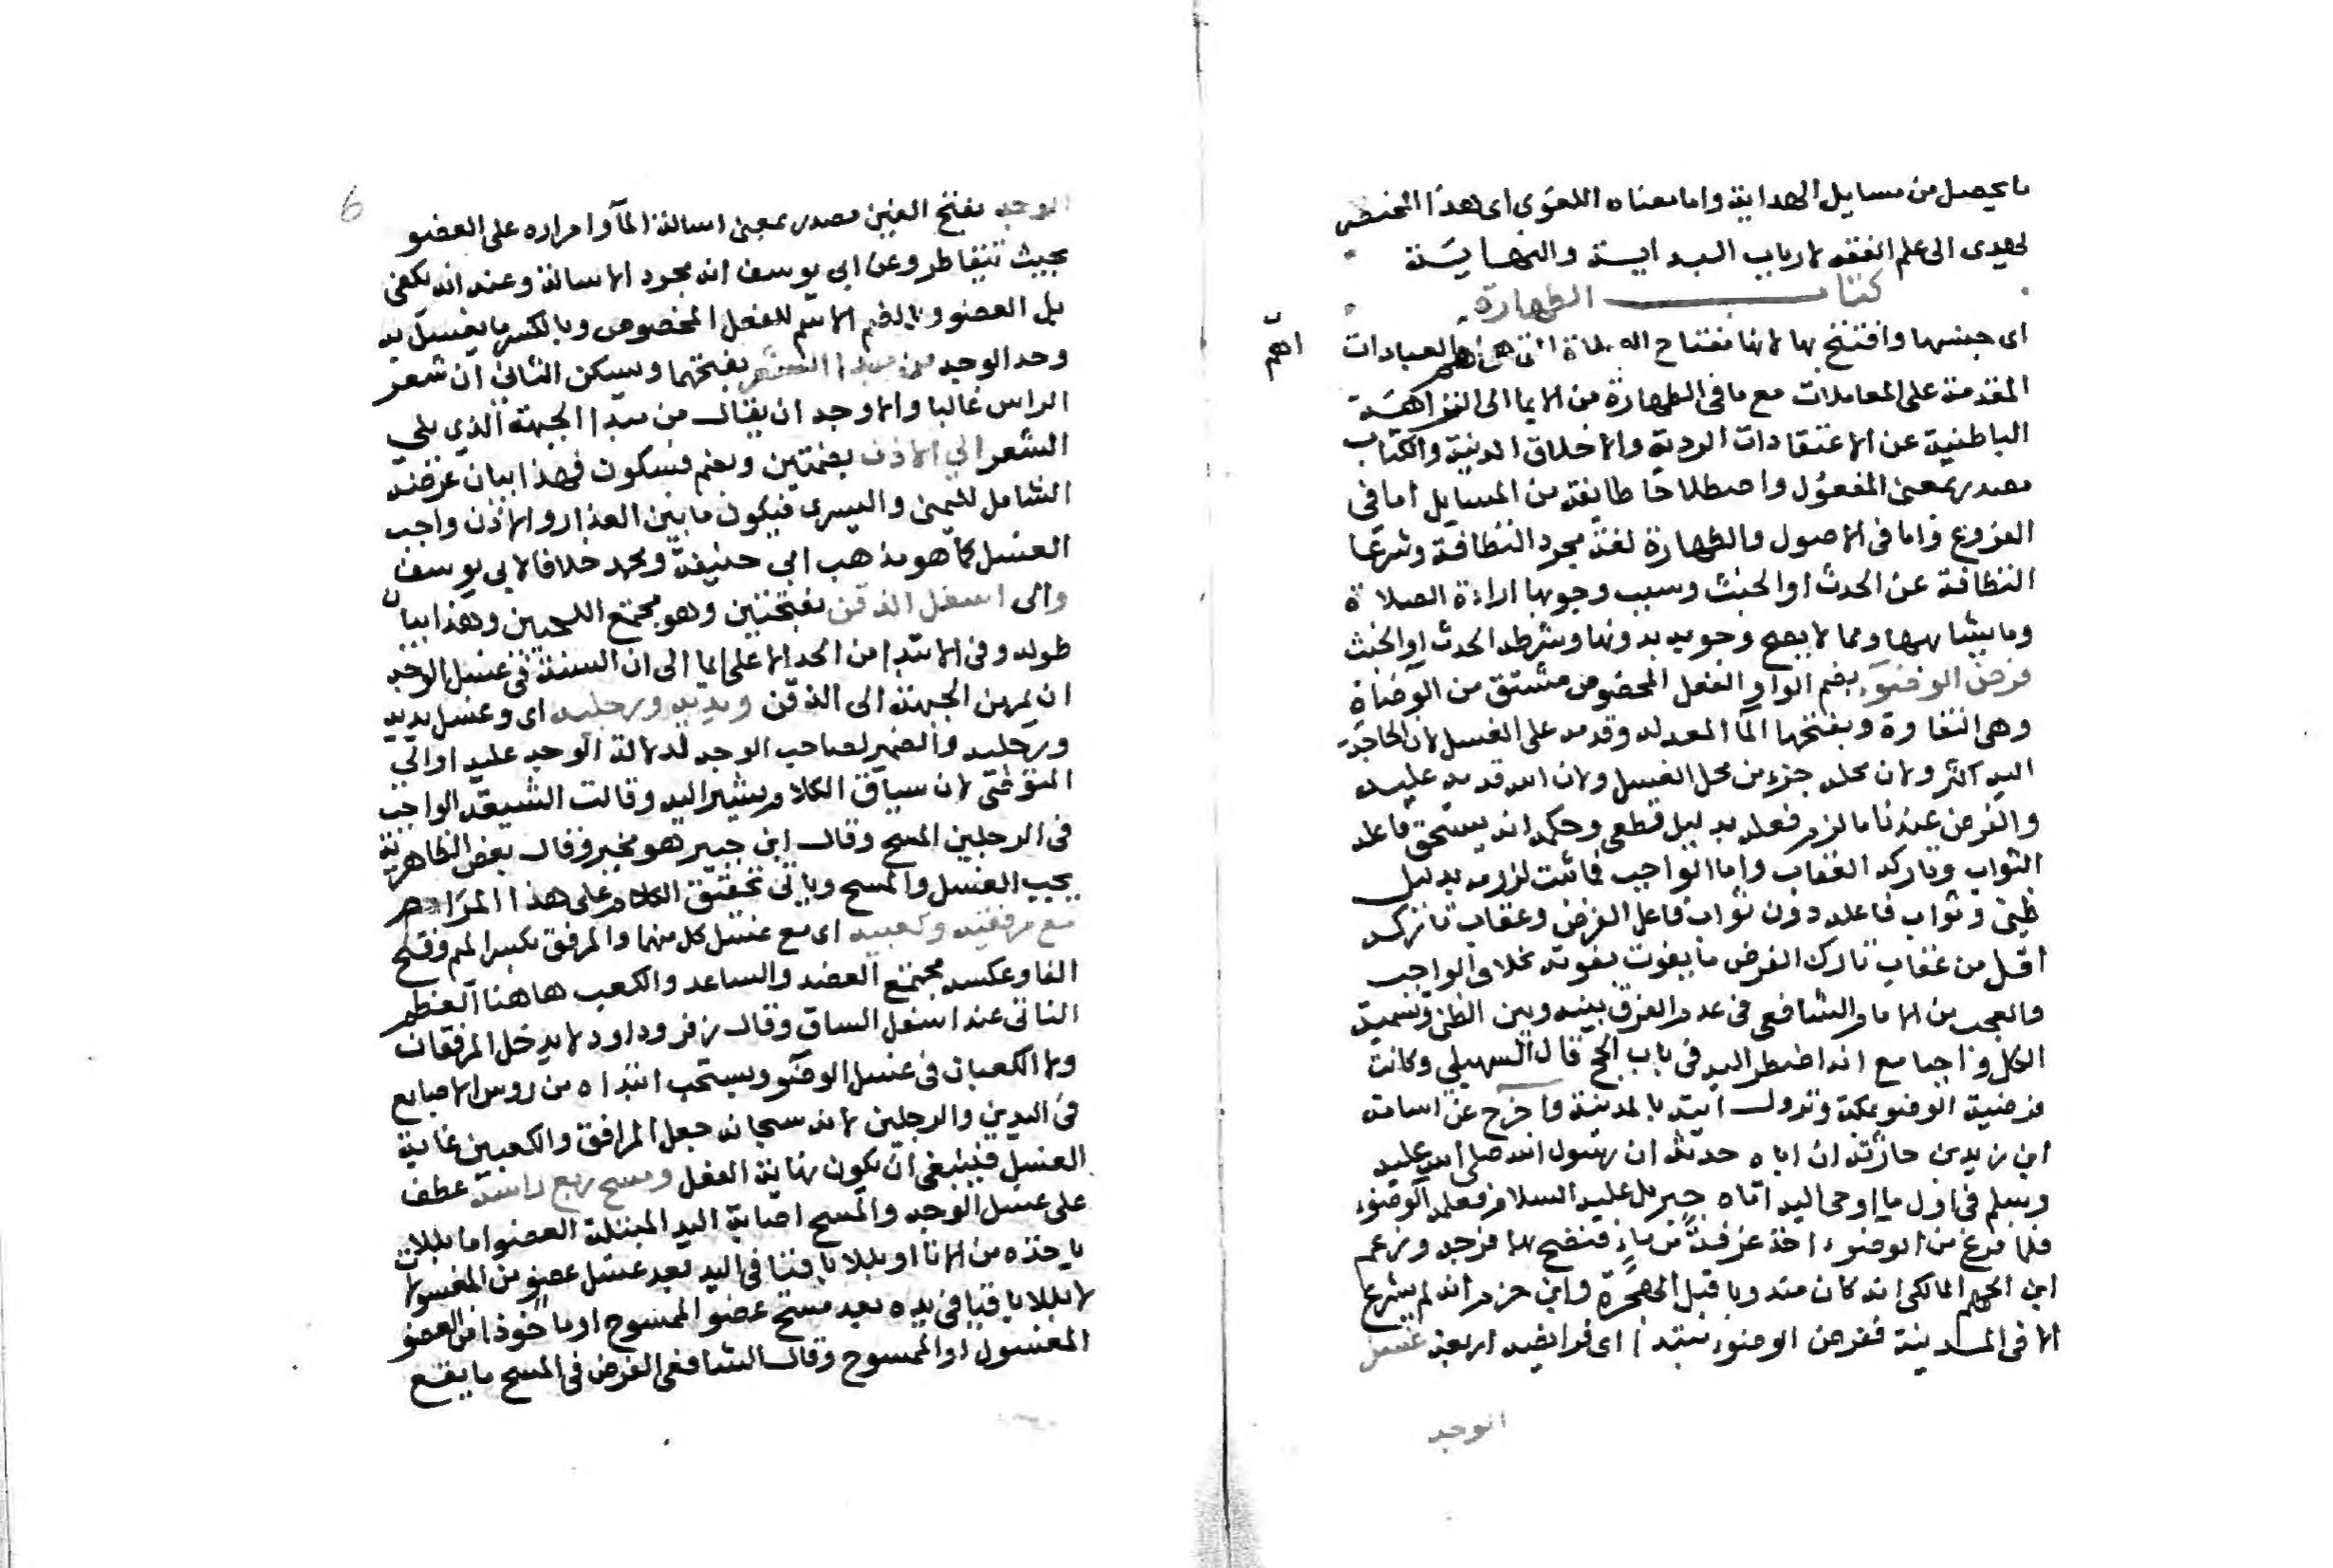 ما يحصل من مسايل الهداية واما معناه اللغوى اى هذا المختصر
لهدى الى علم الفقه لارباب البداية والنهاية
كتاب الطهارة
اى جنسها وافتتح بها لانها مفتاح الصلاة التى هى اهم العبادات
اهم
المقدمة على المعاملات مع ما فى الطهارة من الايما الى النزاهة
الباطنية عن الاعتقادات الردية والاخلاق الدنية والكتاب
مصدر بمعنى المفعول واصطلاحا طايفة من المسايل اما فى
الفروع واما فى الاصول والطهارة لغة مجرد النظافة وشرعا
النظافة عن الحدث او الخبث وسبب وجوبها ارادة الصلاة
وما يشابهها ومما لا يصح وجوده بدونها وشرطه الحدث او الخبث
فرض الوضوء بضم الواو الفعل المخصوص مشتق من الوضاة
وهى النقاوة وبفتحها الما المعد له وقدمه على الغسل لان الحاجة
اليه اكثر ولان محله جزء من محل الغسل ولان الله قدمه عليه
والفرض عندنا ما لزم فعله بدليل قطعى وحكمه انه يستحق فاعله
الثواب وتاركه العقاب واما الواجب فما ثبت لزومه بدليل
ظنى وثواب فاعله دون ثواب فاعل الفرض وعقاب تاركه
اقل من عقاب تارك الفرض ما يفوت بفوته بخلاف الواجب
والعجب من الامام الشافعى فى عدم الفرق بينه وبين الظنى وتسمية
الكل واجبا مع انه اضطر اليه فى باب الحج قال السهيلي وكانت
فرضية الوضو بمكة ونزول ايته بالمدينة واخرج عن اسامة
ابن زيد بن حارثة ان اباه حدثه ان رسول الله صلى الله عليه
وسلم فى اول ما اوحى اليه اتاه جبريل عليه السلام فعلمه الوضوء
فلما فرغ من الوضوء اخذ غرفة من ماء فنضح بها فرجه وزعم
ابن الجهم المالكى انه كان مندوبا قبل الهجرة وابن حزم انه لم يشرع
الا فى المدينة ففرض الوضوء مبتدا اى فرايضه اربعة غسل
الوجه
6
الوجه بفتح الغين مصدر بمعنى اسالة الما وامراره على العضو
بحيث تتقاطر وعن ابى يوسف انه مجرد الاسالة وعنه انه يكفى
بل العضو وبالضم الاسم للفعل المخصوص وبالكسر ما يغسل به
وحد الوجه من مبدا الشعر بفتحهما ويسكن الثانى ان شعر
الراس غالبا والاوجه ان يقال من مبدا الجبهة الذي يلي
الشعر الي الاذن بضمتين وبضم فسكون فهذا بيان عرضه
الشامل لليمنى واليسرى فيكون ما بين العذار والاذن واجب
الغسل كما هو مذهب ابى حنيفة ومحمد خلافا لابي يوسف
والى اسفل الذقن بفتحتين وهو مجتمع اللحيين وهذا بيان
طوله وفى الابتدا من الحد الاعلى ايما الى ان السنة فى غسل الوجه
ان يمر من الجبهة الى الذقن ويديه ورجليه اى وغسل يديه
ورجليه والضمير لصاحب الوجه لدلالة الوجه عليه او الى
المتوضى لان سياق الكلام يشير اليه وقالت الشيعة الواجب
فى الرجلين المسح وقال ابن جبير هو مخير وقال بعض الظاهرية
يجب الغسل والمسح وياتى تحقيق الكلام على هذا المرام
مع مرفقيه وكعبيه اى مع غسل كل منهما والمرفق بكسر الميم وفتح
الفا وعكسه مجتمع العضد والساعد والكعب هاهنا العظم
الناتى عند اسفل الساق وقال زفر وداود لا يدخل المرفقان
ولا الكعبان فى غسل الوضو ويستحب ابتداه من روس الاصابع
فى اليدين والرجلين لانه سبحانه جعل المرافق والكعبين غاية
الغسل فينبغى ان يكون نهاية الفعل ومسح ربع راسه عطف
على غسل الوجه والمسح اصابة اليد المبتلة العضو اما بللا
ياخذه من الانا او بللا باقيا فى اليد بعد غسل عضو من المغسولات
لا بللا باقيا فى يده بعد مسح عضو الممسوح او ماخوذا من العضو
المغسول او الممسوح وقال الشافعى الفرض فى المسح ما يقع